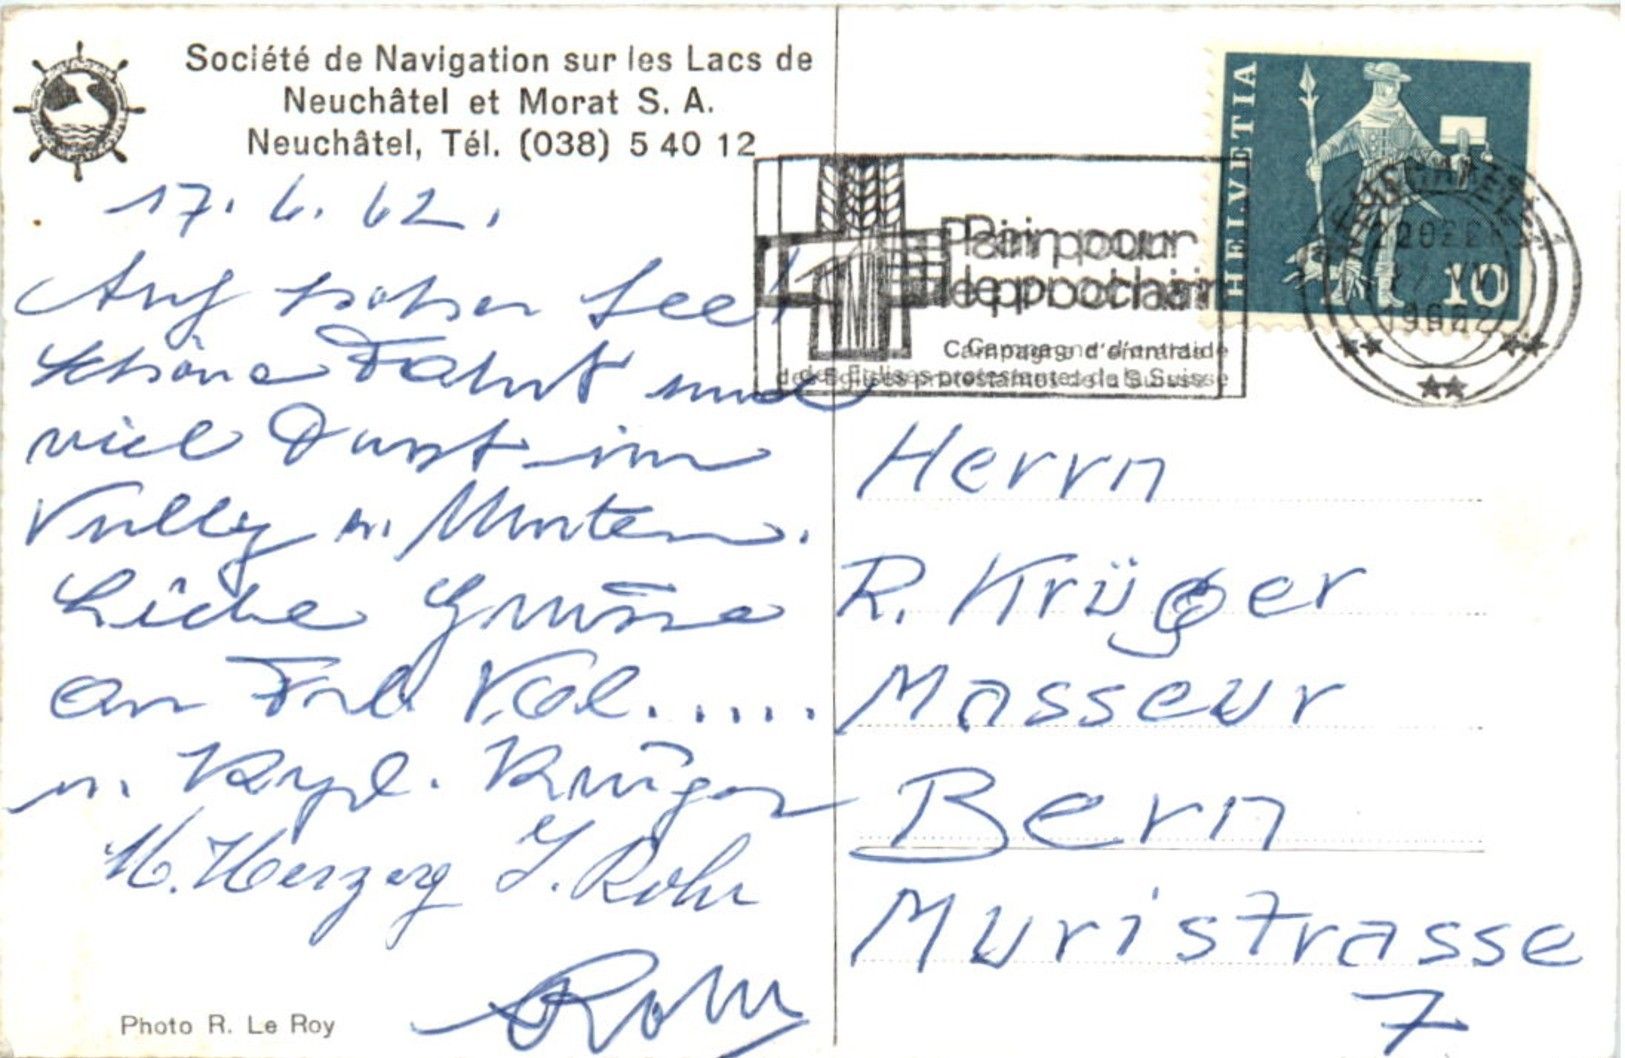 Société de Navigation sur les Lacs de
Neuchâtel et Morat S. A.
Neuchâtel, Tél. (038) 5 40 12
17. 6. 62.
Auf hoher See!
Schöne Fahrt und
viel Durst im
Vully u. Murten.
Liebe Grüsse
an Frl. Val.....
u. Krüger
H. Herzog J. Rohr
Rohr
Photo R. Le Roy
HELVETIA
10
NEUCHATEL
1962
Pain pour
le prochain
Campagne d'entraide
des Eglises protestantes de la Suisse
Herrn
R. Krüger
Masseur
Bern
Muristrasse
7